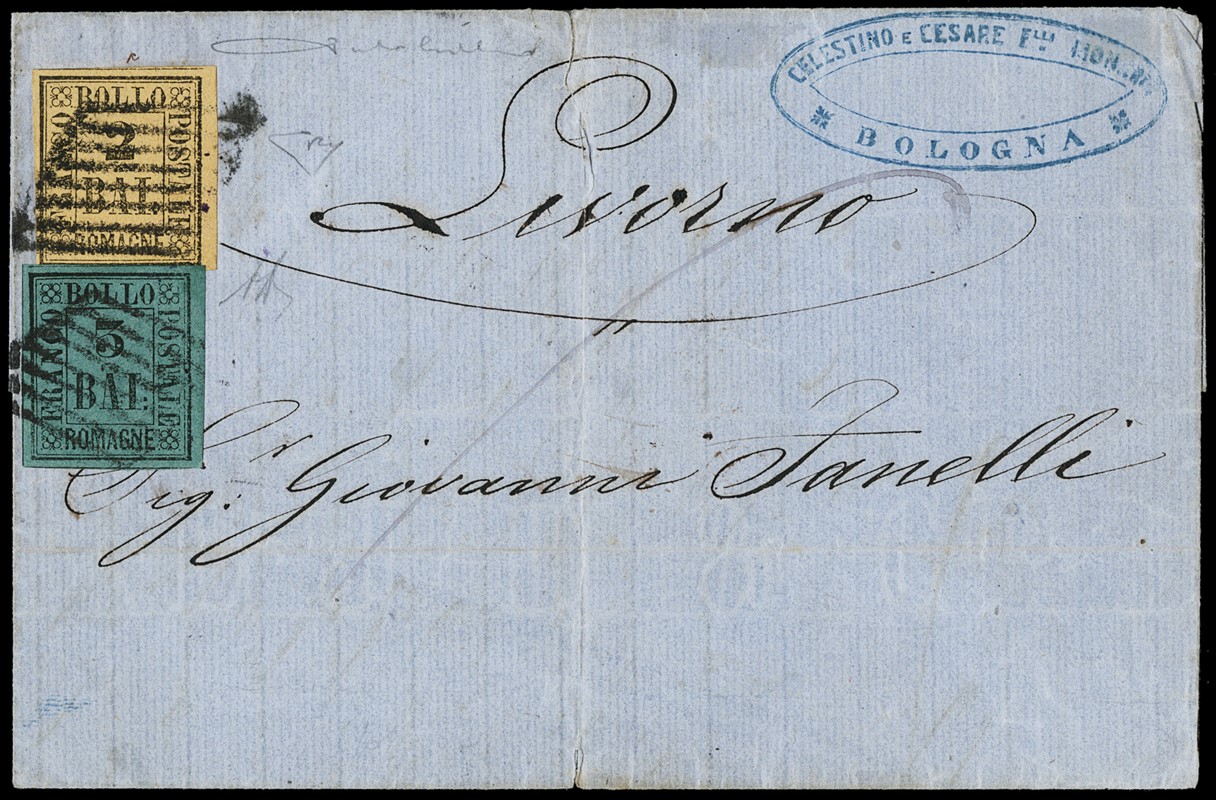 BOLLO
FRANCO
POSTALE
2
BAI.
ROMAGNE
BOLLO
FRANCO
POSTALE
3
BAI.
ROMAGNE
CELESTINO E CESARE F.LLI
BOLOGNA
Livorno
Sig.r Giovanni Fanelli